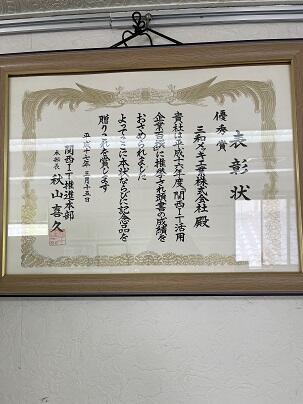 表彰状
優秀賞
三和メッキ工業株式会社 殿
貴社は平成十六年度「関西IT活用
企業百撰」に推挙され頭書の成績を
おさめられました
よってここに本状ならびに記念品を
贈りこれを賞します
平成十七年 三月十五日
関西IT推進本部
本部長 秋山喜久